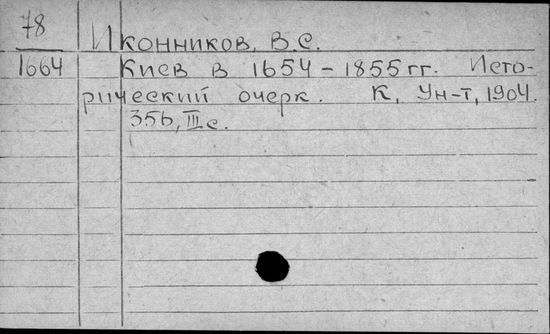 78
Иконников, В.С.
1664
Киев в 1654-1855 гг. Исто-
рический очерк. К, Ун-т, 1904.
356, III с.